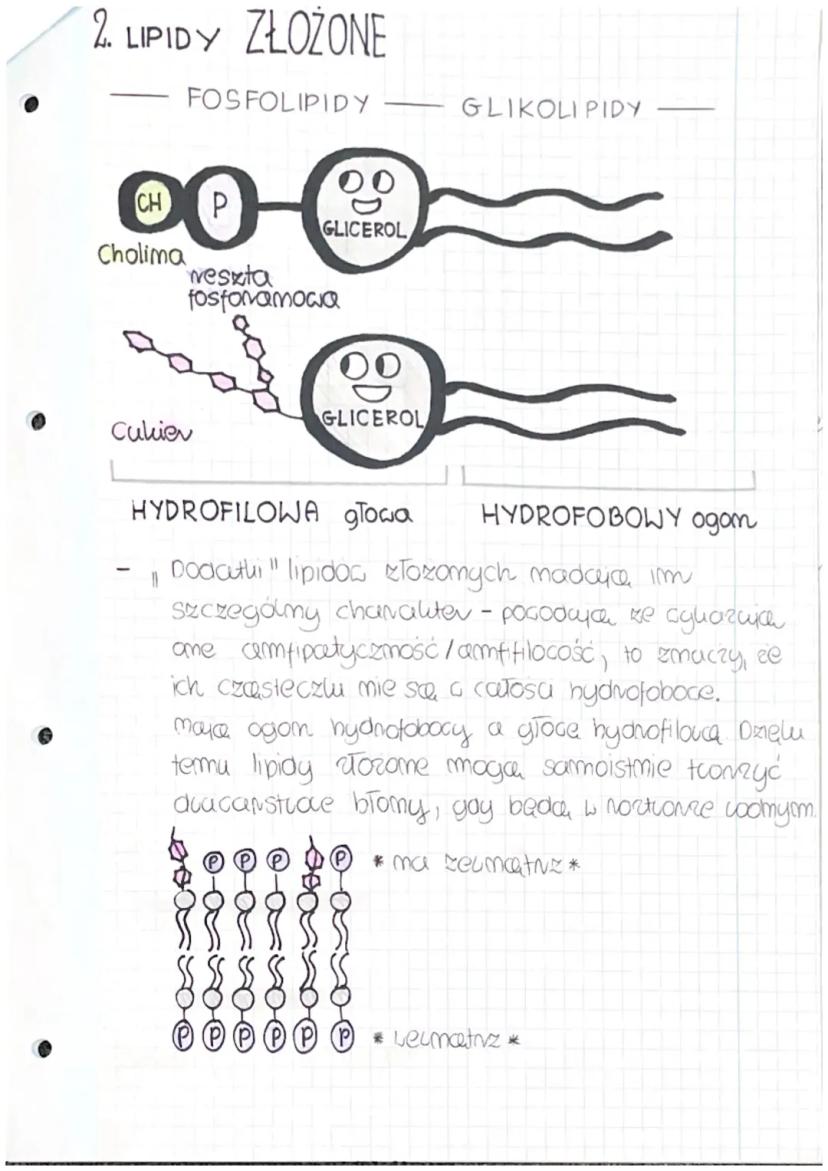 2. LIPIDY ZŁOŻONE
FOSFOLIPIDY GLIKOLIPIDY
CH P GLICEROL
Cholina
reszta
fosforanowa
GLICEROL
Cukier
HYDROFILOWA głowa HYDROFOBOWY ogon
- "Dodatki" lipidów złożonych nadają im
szczególny charakter - powodują że wykazują
one amfipatyczność/amfifilowość, to znaczy, że
ich cząsteczki nie są w całości hydrofobowe.
mają ogon hydrofobowy a głowę hydrofilową Dzięki
temu lipidy złożone mogą samoistnie tworzyć
dwuwarstwowe błony, gdy będą w roztworze wodnym.
P P P P * na zewnątrz *
P P P P P P * wewnątrz *